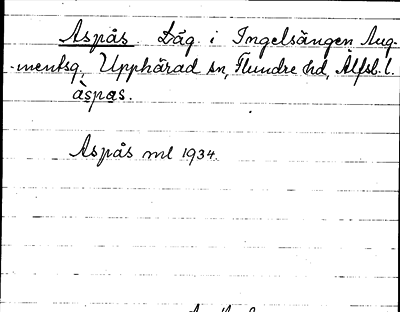 Aspås. Låg. i Ingelsängen Aug-
-mentsg, Upphärad sn, Flundre hd, Älfsb. l.
àspas.
Aspås ml 1934.